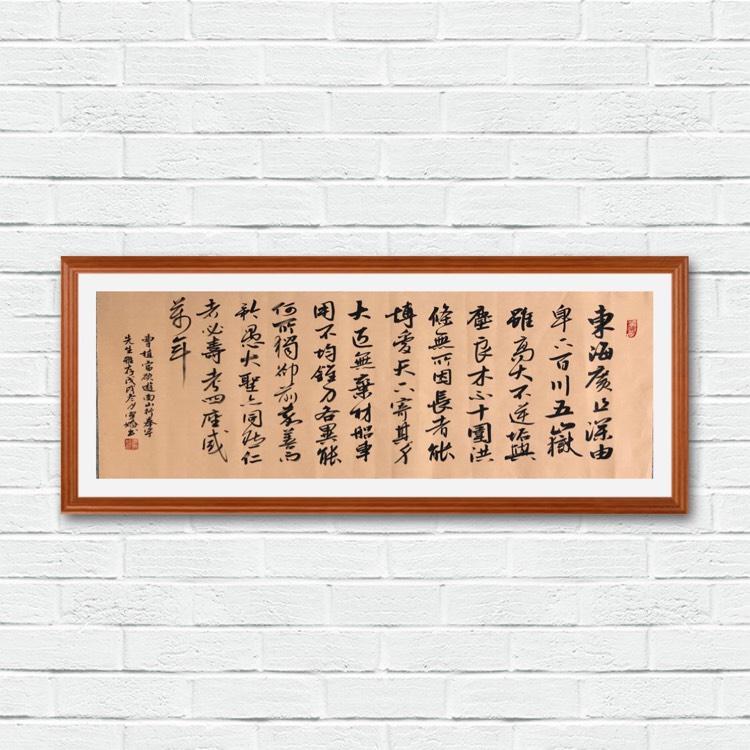 東海廣且深由
卑下百川五嶽
雖高大不逆垢與
塵良木不十圍洪
條無所因長者能
博愛天下寄其身
大匠無棄材船車
用不均錐刀各異能
何所獨卻前嘉善而
矜愚大聖亦同然仁
者必壽考四座咸
萬年
曹植當欲遊南山行
先生雅存戊戌冬月書